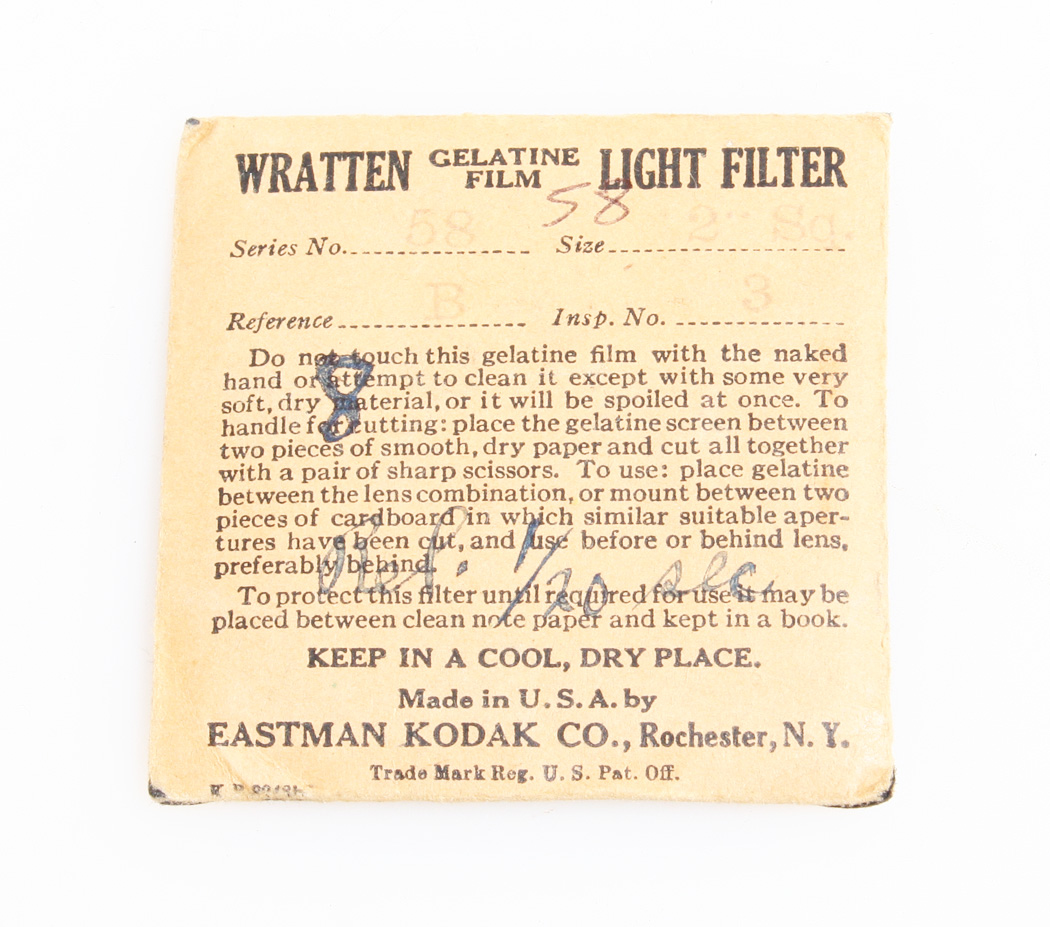 WRATTEN GELATINE FILM LIGHT FILTER
58
Series No. 58 Size 2" Sq.
Reference B Insp. No. 3
Do not touch this gelatine film with the naked
hand or attempt to clean it except with some very
soft, dry material, or it will be spoiled at once. To
handle for cutting: place the gelatine screen between
two pieces of smooth, dry paper and cut all together
with a pair of sharp scissors. To use: place gelatine
between the lens combination, or mount between two
pieces of cardboard in which similar suitable aper-
tures have been cut, and use before or behind lens,
preferably behind.
8
1/20 sec
To protect this filter until required for use it may be
placed between clean note paper and kept in a book.
KEEP IN A COOL, DRY PLACE.
Made in U.S.A. by
EASTMAN KODAK CO., Rochester, N. Y.
Trade Mark Reg. U. S. Pat. Off.